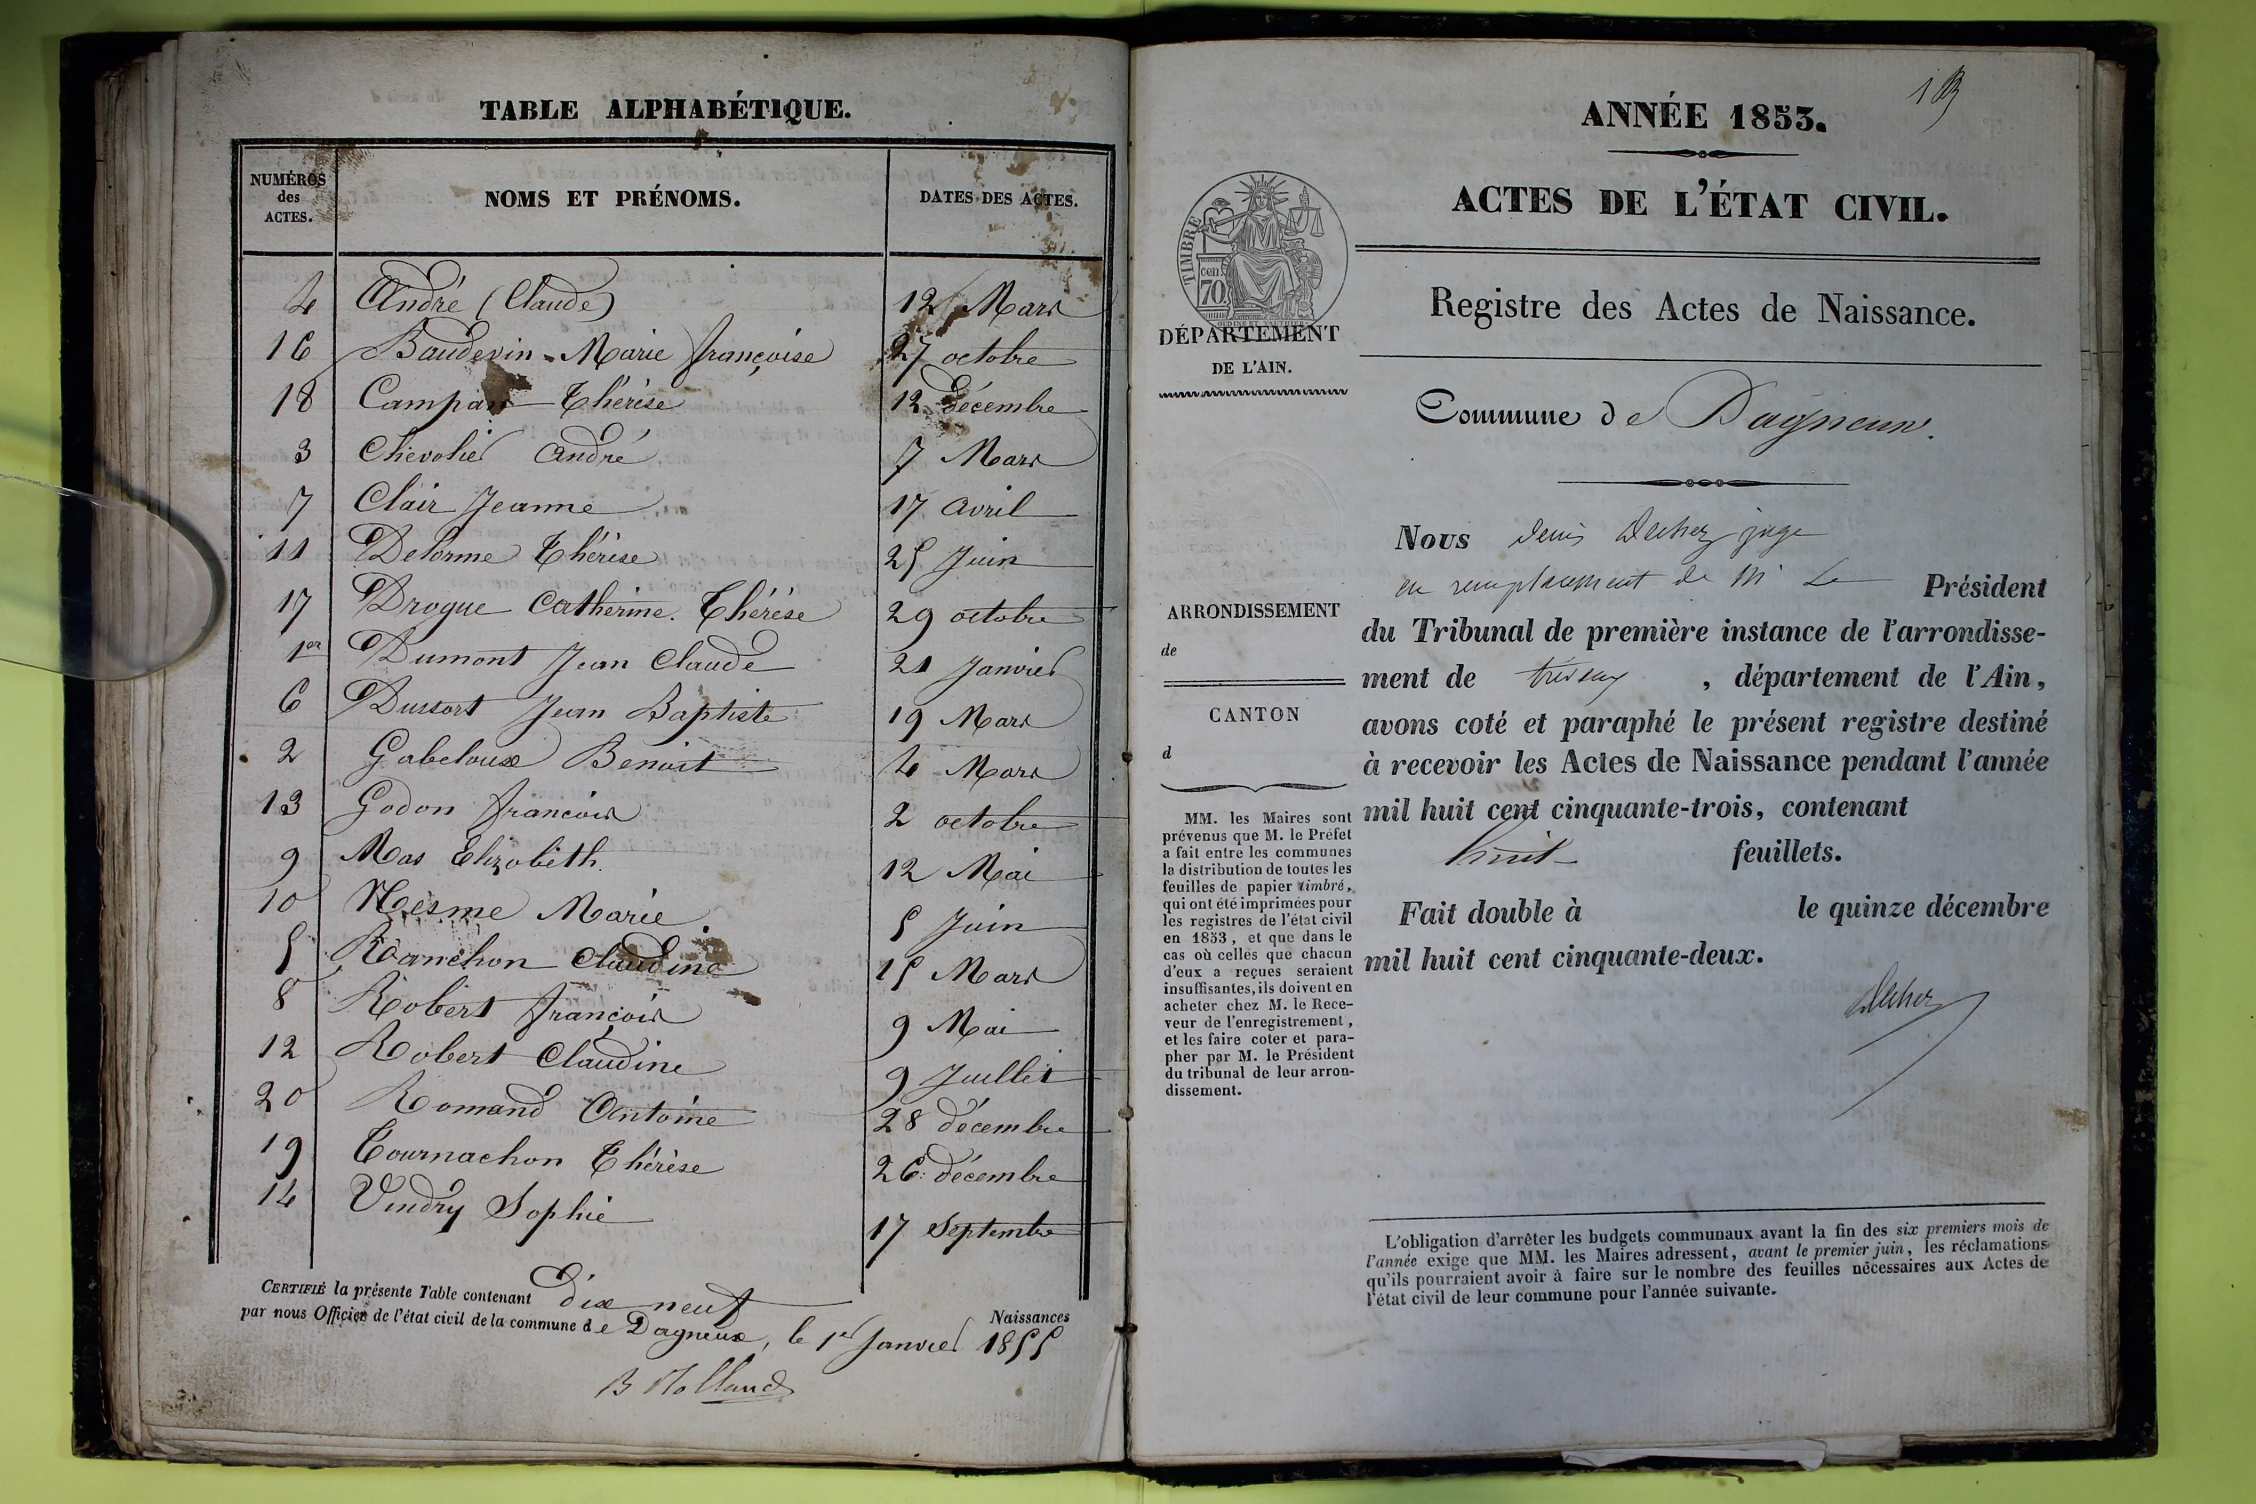 TABLE ALPHABÉTIQUE.
NUMÉROS des ACTES. NOMS ET PRÉNOMS. DATES DES ACTES.
4 André (Claude) 12 Mars
16 Baudevin - Marie françoise 27 octobre
18 Campan Thérèse 12 décembre
3 Chevolier André 7 Mars
7 Clair Jeanne 17 avril
11 Delorme Thérèse 25 Juin
17 Drogue Catherine. Thérèse 29 octobre
1er Dumont Jean Claude 21 Janvier
6 Dussort Jean Baptiste 19 Mars
2 Gabeloux Benoit 4 Mars
13 Godon françois 2 octobre
9 Mas Elizabeth. 12 Mai
10 Mesme Marie 5 Juin
5 Ranchon Claudine 15 Mars
8 Robert françois 9 Mai
12 Robert Claudine 9 Juillet
20 Romand Antoine 28 décembre
19 Tournachon Thérèse 26 décembre
14 Vindry Sophie 17 Septembre
CERTIFIÉ la présente Table contenant dix neuf Naissances
par nous Officier de l'état civil de la commune de Dagneux, le 1er Janvier 1855
B Rolland
1
ANNÉE 1853.
ACTES DE L'ÉTAT CIVIL.
TIMBRE
70 cen
DÉPARTEMENT
DE L'AIN.
Registre des Actes de Naissance.
Commune de Dagneux.
ARRONDISSEMENT
de
CANTON
d
MM. les Maires sont
prévenus que M. le Préfet
a fait entre les communes
la distribution de toutes les
feuilles de papier timbré,
qui ont été imprimées pour
les registres de l'état civil
en 1853, et que dans le
cas où celles que chacun
d'eux a reçues seraient
insuffisantes, ils doivent en
acheter chez M. le Rece-
veur de l'enregistrement,
et les faire coter et para-
pher par M. le Président
du tribunal de leur arron-
dissement.
Nous Denis juge
en remplacement de Mr Le Président
du Tribunal de première instance de l'arrondisse-
ment de trévoux , département de l'Ain,
avons coté et paraphé le présent registre destiné
à recevoir les Actes de Naissance pendant l'année
mil huit cent cinquante-trois, contenant
huit feuillets.
Fait double à le quinze décembre
mil huit cent cinquante-deux.
L'obligation d'arrêter les budgets communaux avant la fin des six premiers mois de
l'année exige que MM. les Maires adressent, avant le premier juin, les réclamations
qu'ils pourraient avoir à faire sur le nombre des feuilles nécessaires aux Actes de
l'état civil de leur commune pour l'année suivante.